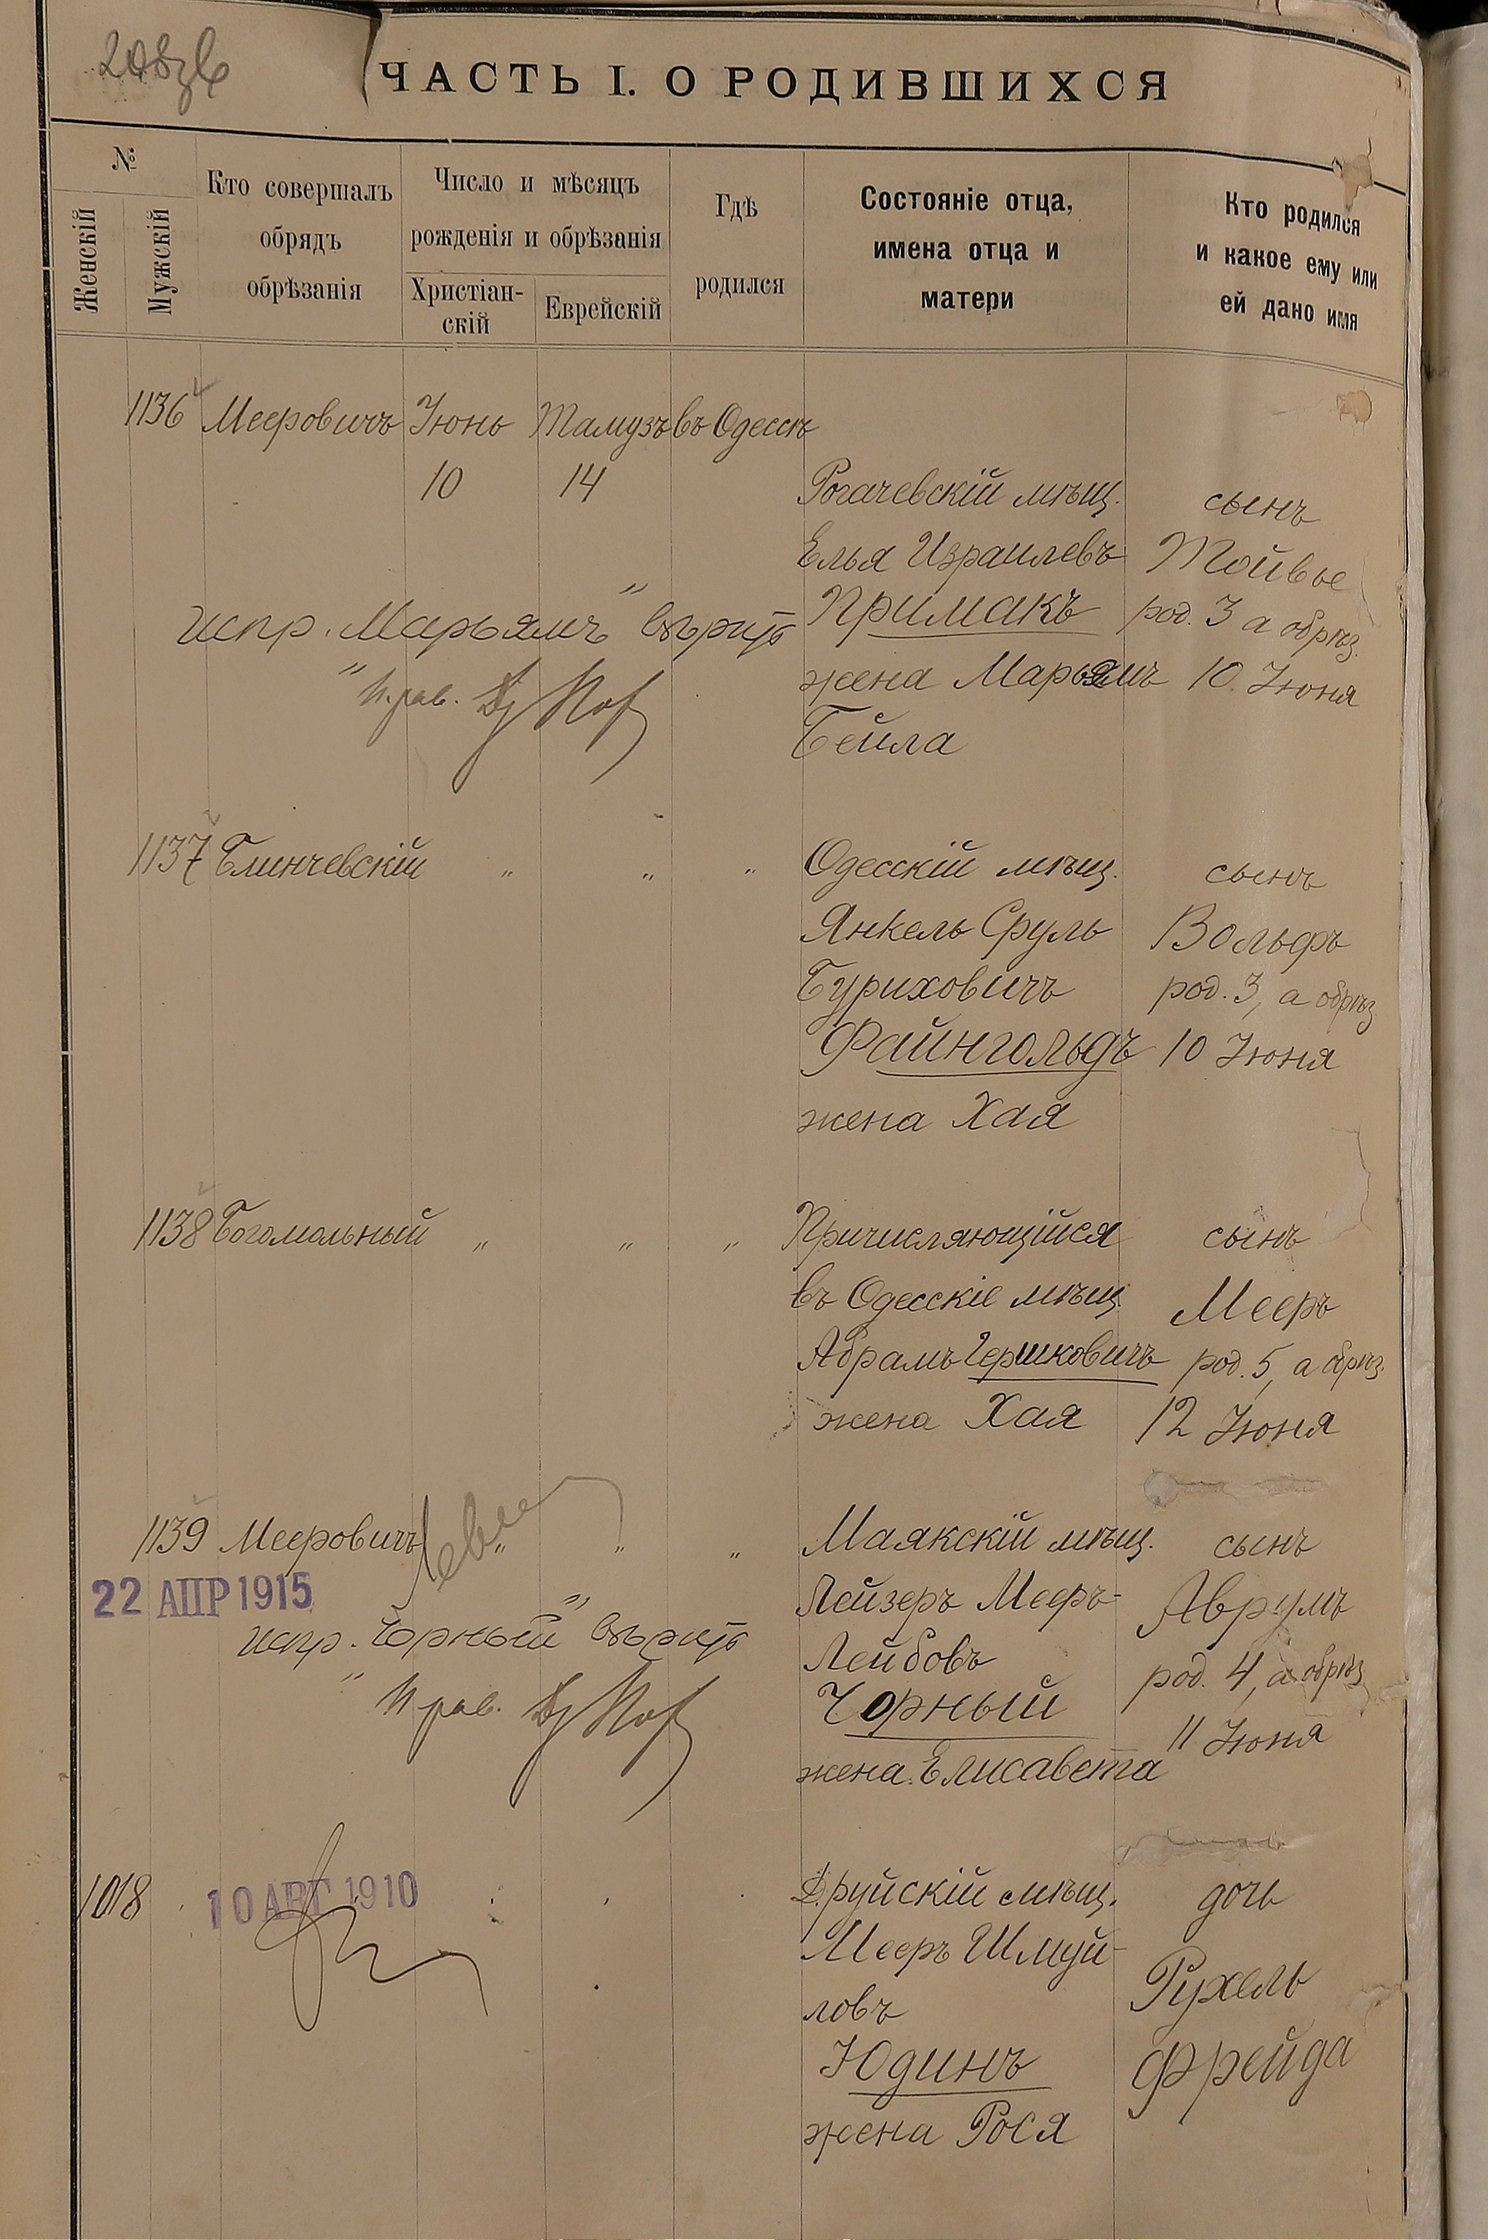 208
ЧАСТЬ I. О РОДИВШИХСЯ
№
Женскій
Мужскій
Кто совершалъ
обрядъ
обрѣзанія
Число и мѣсяцъ
рожденія и обрѣзанія
Христіан-
скій
Еврейскій
Гдѣ
родился
Состояніе отца,
имена отца и
матери
Кто родился
и какое ему или
ей дано имя
1136 Мееровичъ Іюнь Тамузъ въ Одессѣ
10 14
Рогачевскій мѣщ.
Елья Израилевъ
Примакъ
жена Марьямъ
Бейла
сынъ
Тойвье
род. 3 а обрѣз.
10 Іюня
испр. „Марьямъ" вѣрить
И. рав.
1137 Блинчевскій „ „ „
Одесскій мѣщ.
Янкель Сруль
Буриховичъ
Файнгольдъ
жена Хая
сынъ
Вольфъ
род. 3, а обрѣз
10 Іюня
1138 Богомольный „ „ „
Причисляющійся
въ Одесскіе мѣщ
Абрамъ Гершковичъ
жена Хая
сынъ
Мееръ
род. 5, а обрѣз.
12 Іюня
1139 Мееровичъ „ „ „
22 АПР 1915
испр. „Чорный" вѣрить
И рав.
Маякскій мѣщ.
Лейзеръ Мееръ-
Лейбовъ
Чорный
жена Елисавета
сынъ
Аврумъ
род. 4, а обрѣз
11 Іюня
1018
10 АВГ 1910
Друйскій мѣщ.
Мееръ Шмуй-
ловъ
Юдинъ
жена Рося
дочь
Рухель
Фрейда